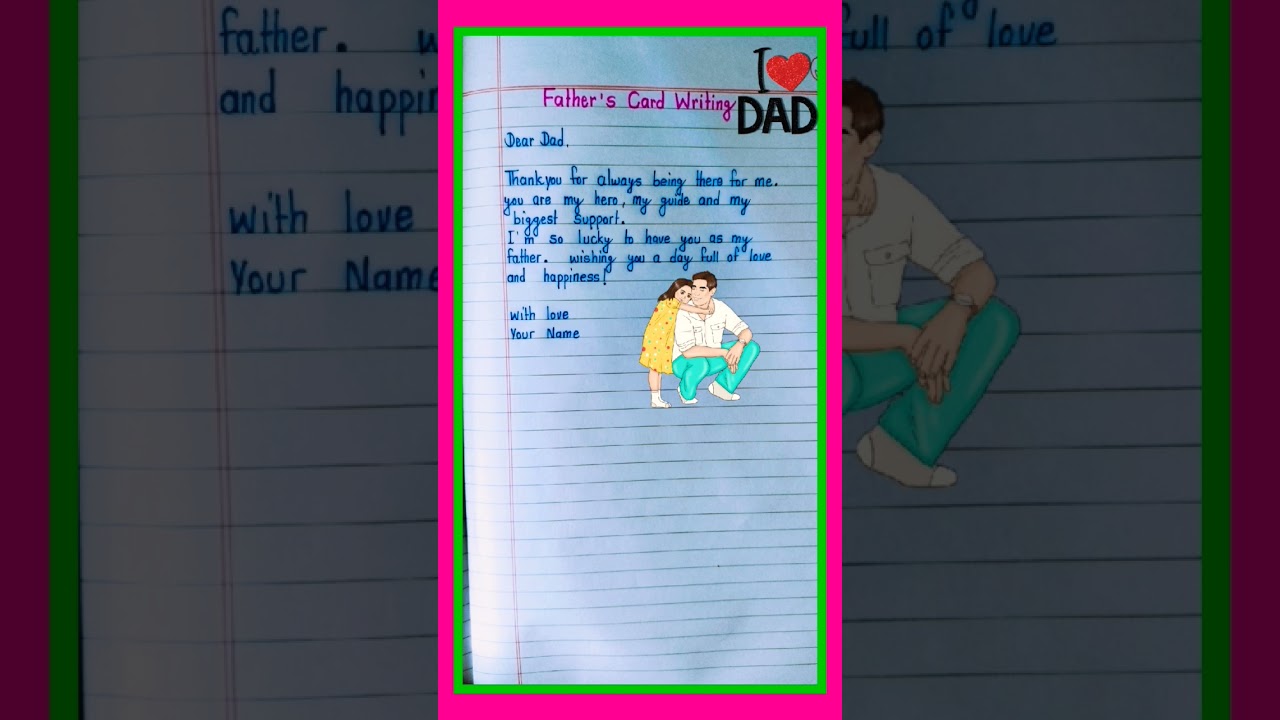 father. w
and happin
with love
Your Name
I ❤
DAD
Father's Card Writing
Dear Dad,
Thankyou for always being there for me.
you are my hero, my guide and my
biggest support.
I'm so lucky to have you as my
father. wishing you a day full of love
and happiness!
with love
Your Name
full of love